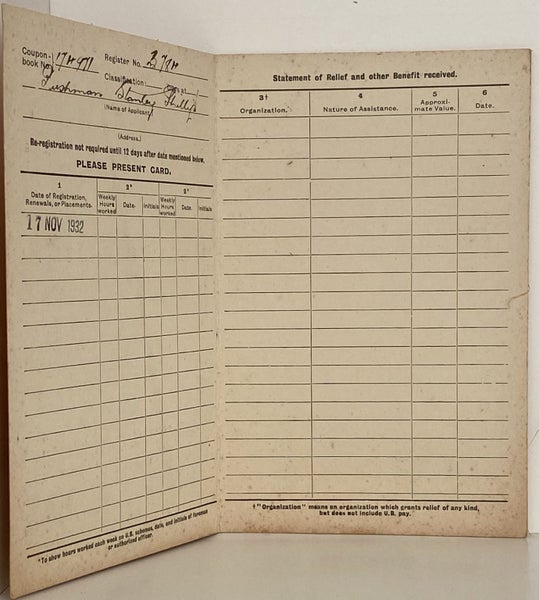 Coupon- book No. 17471 Register No.
Classification:
Stanley Phillip
(Name of Applicant)
(Address.)
Re-registration not required until 12 days after date mentioned below.
PLEASE PRESENT CARD.
1 2* 2*
Date of Registration, Renewals, or Placements. Weekly Hours worked Date. Initials Weekly Hours worked Date. Initials
17 NOV 1932
*To show hours worked each week on U.B. schemes, date, and initials of foreman
or authorized officer.
Statement of Relief and other Benefit received.
3† 4 5 6
Organization. Nature of Assistance. Approxi- mate Value. Date.
†"Organization" means an organization which grants relief of any kind,
but does not include U.B. pay.